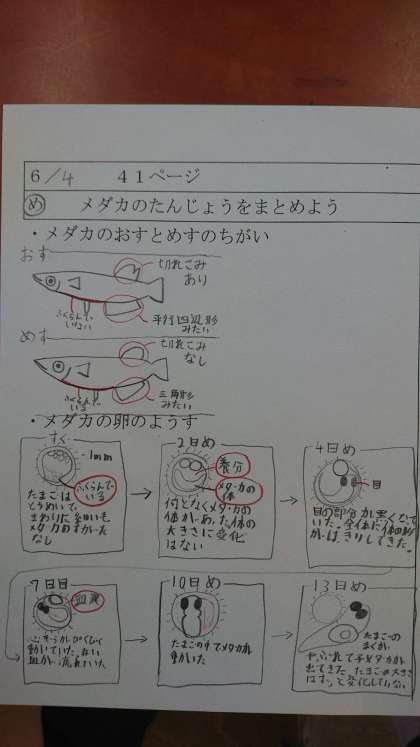 6/4 41ページ
め メダカのたんじょうをまとめよう
・メダカのおすとめすのちがい
おす
切れこみ
あり
ふくらんで
いない
平行四辺形
みたい
めす
切れこみ
なし
ふくらんで
いる
三角形
みたい
・メダカの卵のようす
すぐ
1mm
ふくらんで
いる
たまごは
とうめいで
まわりに細い毛
メダカのすがた
なし
2日め
養分
メダカの
体
何となくメダカの
体があった。体の
大きさに変化
はない
4日め
目
目の部分が黒くなって
いた。全体に体の形
がはっきりしてきた。
7日目
血液
心ぞうがぴくぴく
動いていた。赤い
血が流れていた
10日め
たまごの中でメダカが
動いた
13日め
たまごの
まくが
やぶれて子メダカが
出てきた。たまごの大きさ
はずっと変化していない。